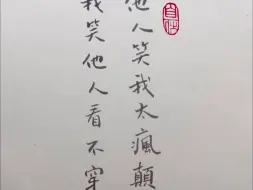 他人笑我太瘋顛
我笑他人看不穿